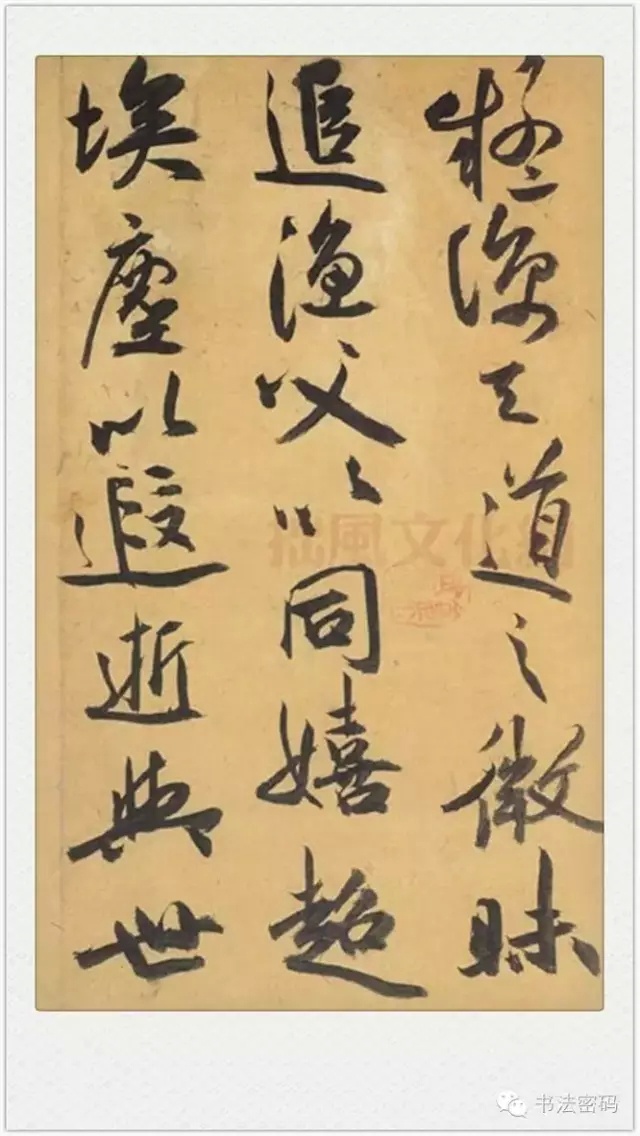 疑諒天道之微昧
追漁父以同嬉超
埃塵以遐逝與世
拙風文化網
书法密码